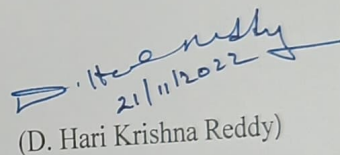 D. Hari Reddy
21/11/2022
(D. Hari Krishna Reddy)